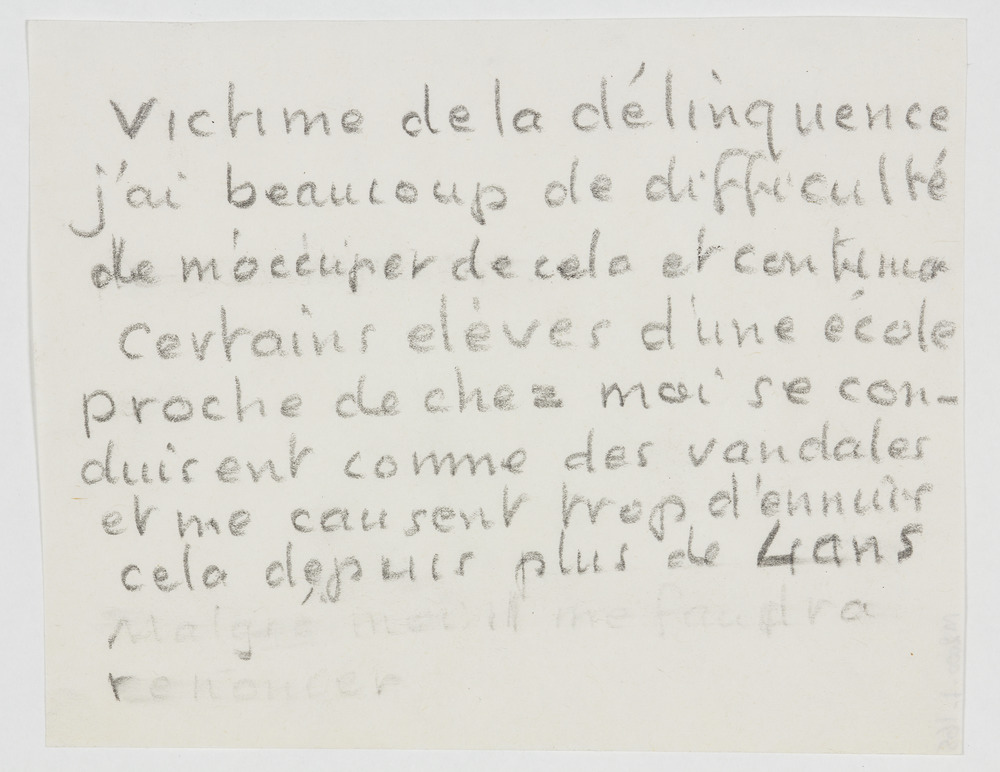 Victime de la délinquence
j'ai beaucoup de difficulté
de m'occuper de cela et continua
Certains elèves d'une école
proche de chez moi se con-
duisent comme des vandales
et me causent trop d'ennuis
cela depuis plus de 4 ans
Malgré moi il me faudra
renoncer